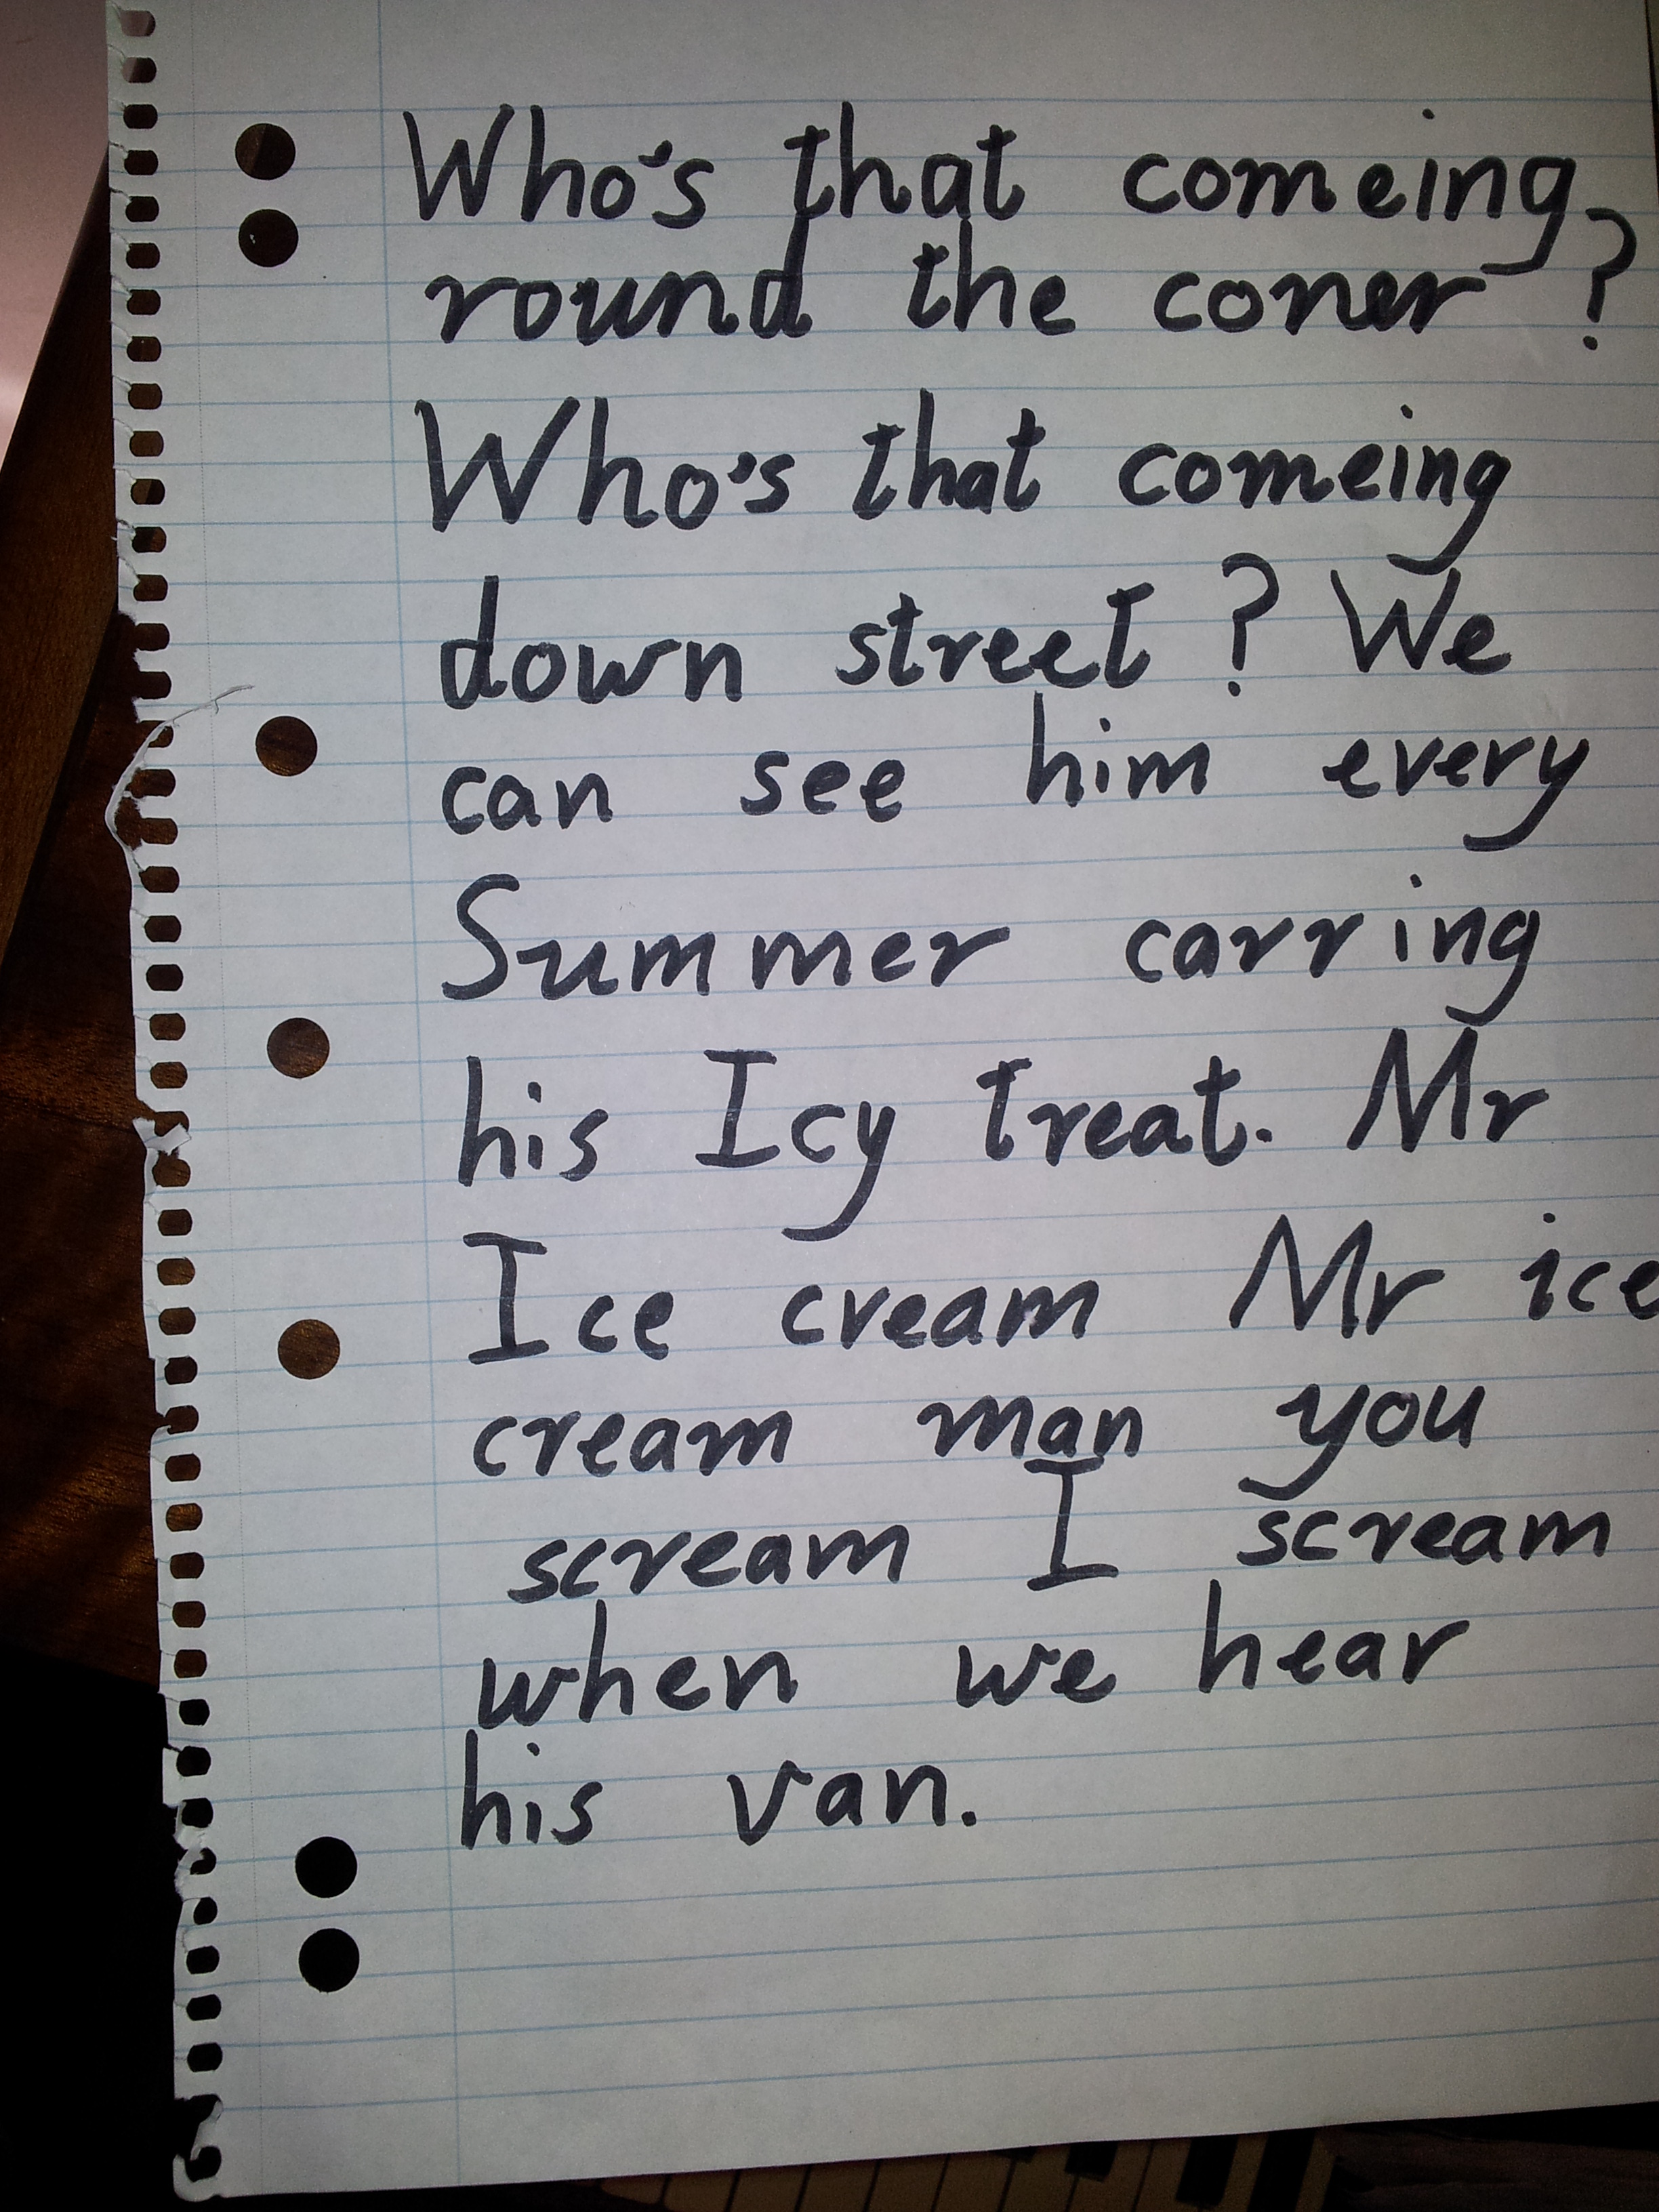 Who's that comeing
round the coner ?
Who's that comeing
down street ? We
can see him every
Summer carring
his Icy treat. Mr
Ice cream Mr ice
cream man you
scream I scream
when we hear
his van.